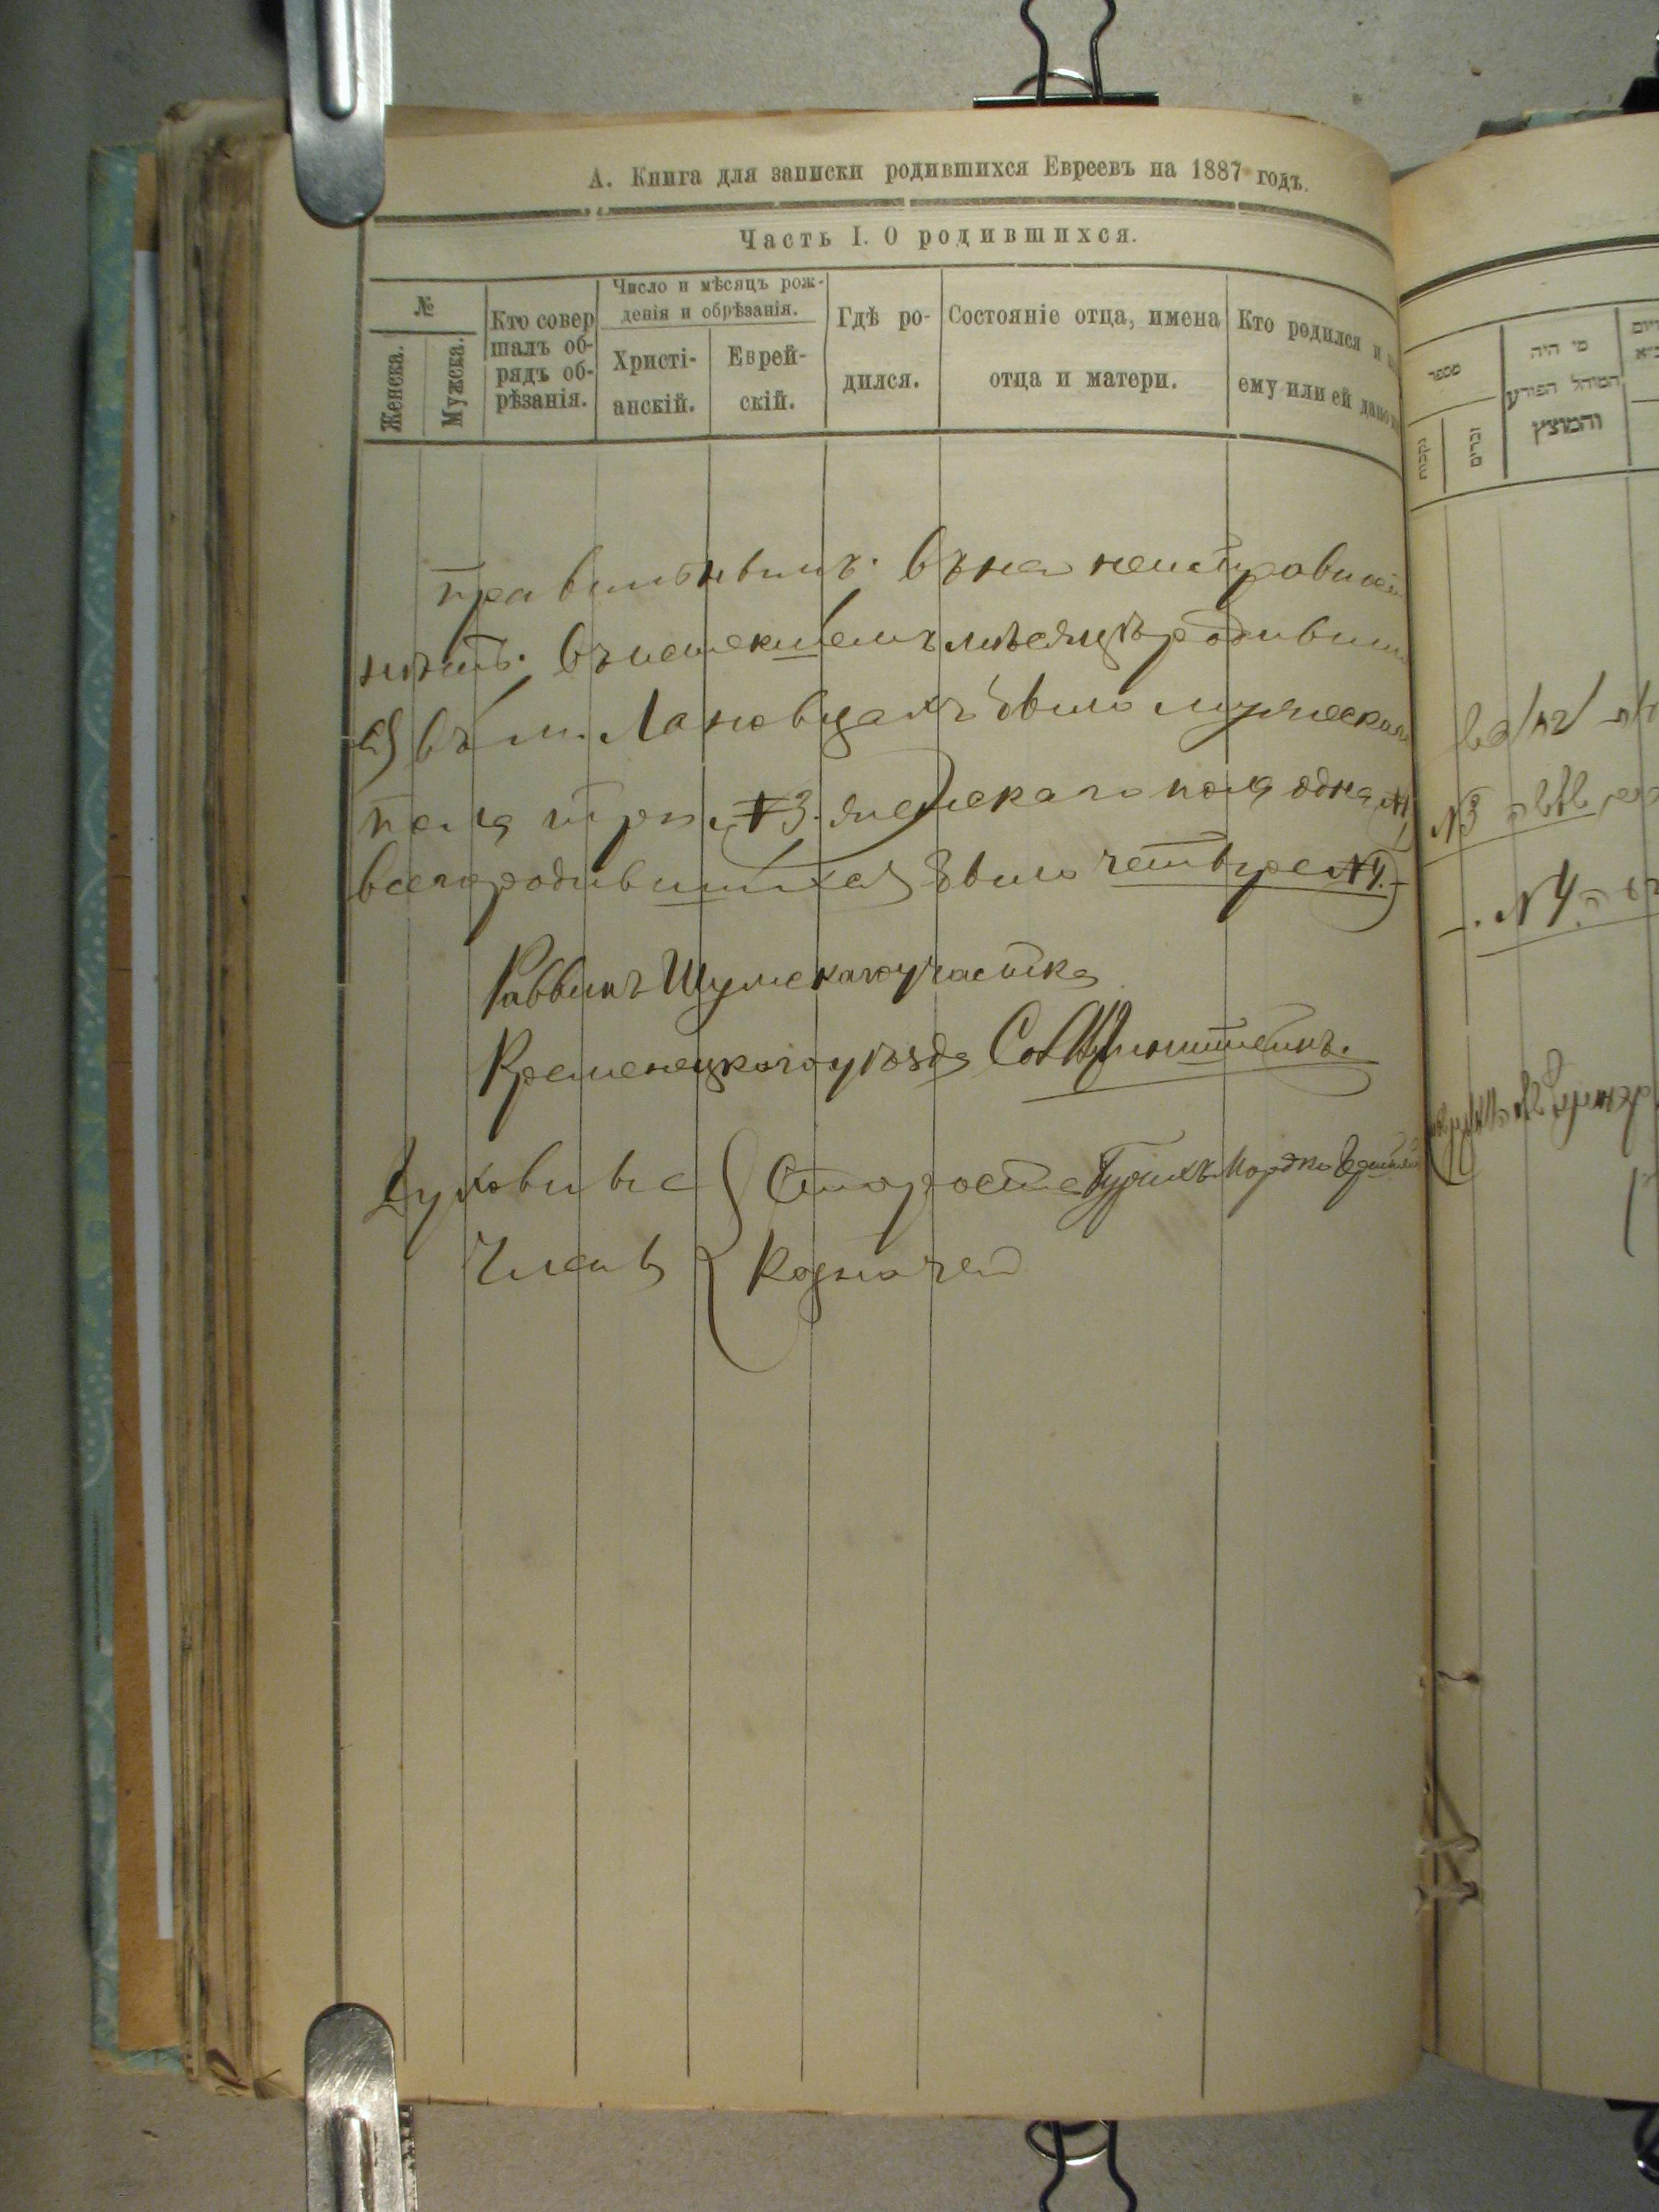 А. Книга для записки родившихся Евреевъ на 1887 годъ.
Часть I. О родившихся.
№
Женска.
Мужска.
Кто совер
шалъ об-
рядъ об-
рѣзанія.
Число и мѣсяцъ рож-
денія и обрѣзанія.
Христі-
анскій.
Еврей-
скій.
Гдѣ ро-
дился.
Состояніе отца, имена
отца и матери.
Кто родился и
ему или ей дано
въ на неисправност
нѣтъ. Въ истекшемъ мѣсяцѣ родивши
ся въ м. Лановцахъ было мужескаго
пола три №3. женскаго пола одна №1
всего родившихся было четыре №4.
Раввинъ Шумскаго участка
Кременецкаго уѣзда
Духовные
Члены
Староста Мордко
Казначей
מספר
נקבות
זכרים
מי היה
המוהל הפורע
והמוצץ
№3
№4